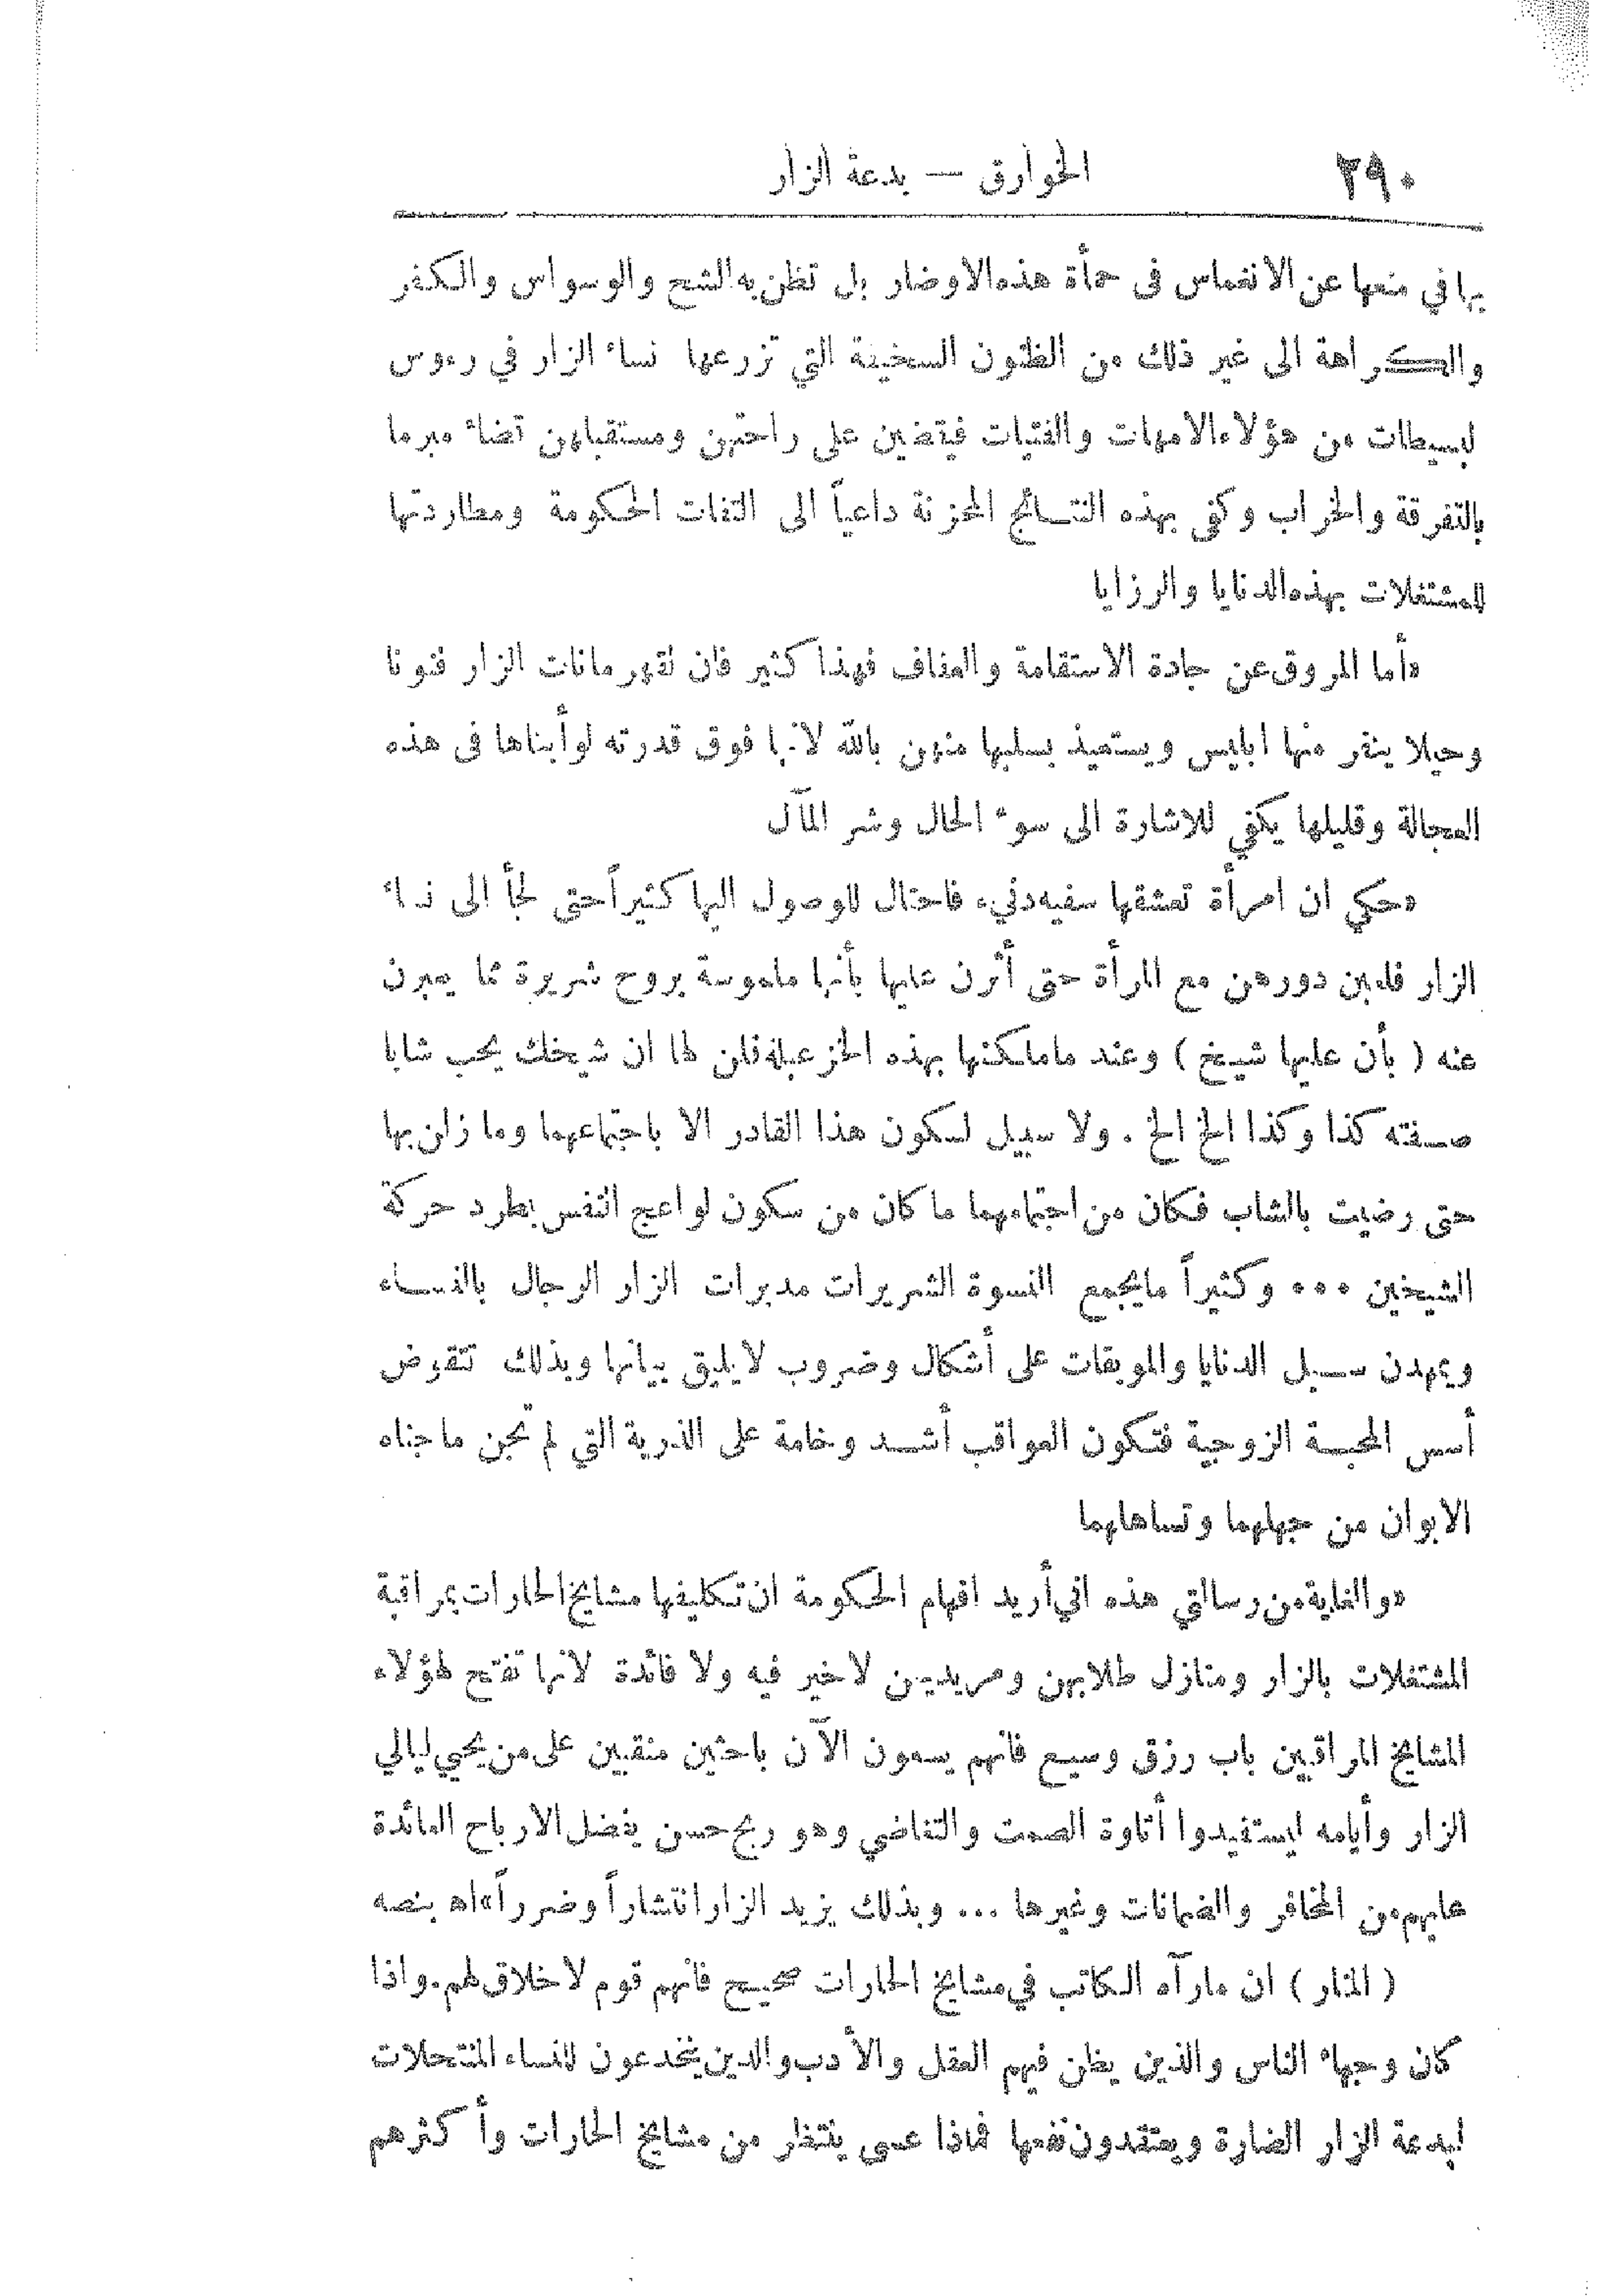 ٢٩٠ الخوارق — بدعة الزار
بها في منعها عن الانغماس فى حمأة هذه الاوضار بل تظن به الشح والوسواس والكفر
والكراهة الى غير ذلك من الظنون السخيفة التي تزرعها نساء الزار في رءوس
لبسيطات من هؤلاء الامهات والفتيات فيقضين على راحتهن ومستقبلهن قضاء مبرما
بالتفرقة والخراب وكفى بهذه النتائج المحزنة داعياً الى التفات الحكومة ومطاردتها
للمشتغلات بهذه الدنايا والرزايا
«أما المروق عن جادة الاستقامة والعفاف فهذا كثير فان لقهرمانات الزار فنونا
وحيلا ينفر منها ابليس ويستعيذ بسلبها منهن بالله لانها فوق قدرته لو أبناها فى هذه
العجالة وقليلها يكفي للاشارة الى سوء الحال وشر المآل
«حكي ان امرأة تعشقها سفيه دنيء فاحتال للوصول اليها كثيراً حتى لجأ الى نساء
الزار فلعبن دورهن مع المرأة حتى أثرن عليها بأنها ملموسة بروح شريرة مما يعبرن
عنه ( بأن عليها شيخ ) وعند ماملكنها بهذه الخزعبلة قلن لها ان شيخك يحب شابا
صفته كذا وكذا الخ الخ . ولا سبيل لسكون هذا القادر الا باجتماعهما وما زلن بها
حتى رضيت بالشاب فكان من اجتماعهما ما كان من سكون لواعج النفس بطرد حركة
الشيخين ٠٠٠ وكثيراً مايجمع النسوة الشريرات مدبرات الزار الرجال بالنساء
ويمهدن سبل الدنايا والموبقات على أشكال وضروب لا يليق بيانها وبذلك تتقوض
أسس المحبة الزوجية فتكون العواقب أشد وخامة على الذرية التي لم تجن ما جناه
الابوان من جهلهما وتساهلهما
«والغاية من رسالتي هذه اني أريد افهام الحكومة ان تكليفها مشايخ الحارات بمراقبة
المشتغلات بالزار ومنازل طلابهن ومريديهن لا خير فيه ولا فائدة لانها تفتح لهؤلاء
المشايخ المراقبين باب رزق وسيع فانهم يسعون الآن باحثين منقبين على من يحيي ليالي
الزار وأيامه ليستفيدوا أتاوة الصمت والتغاضي وهو ربح حسن يفضل الارباح العائدة
عليهم من المخافر والضمانات وغيرها ... وبذلك يزيد الزار انتشاراً وضرراً» اه بنصه
( المنار ) ان مارآه الكاتب في مشايخ الحارات صحيح فانهم قوم لا خلاق لهم. واذا
كان وجهاء الناس والذين يظن فيهم العقل والأدب والدين يخدعون للنساء المنتحلات
لبدعة الزار الضارة ويعتقدون نفعها فماذا عسى ينتظر من مشايخ الحارات وأكثرهم